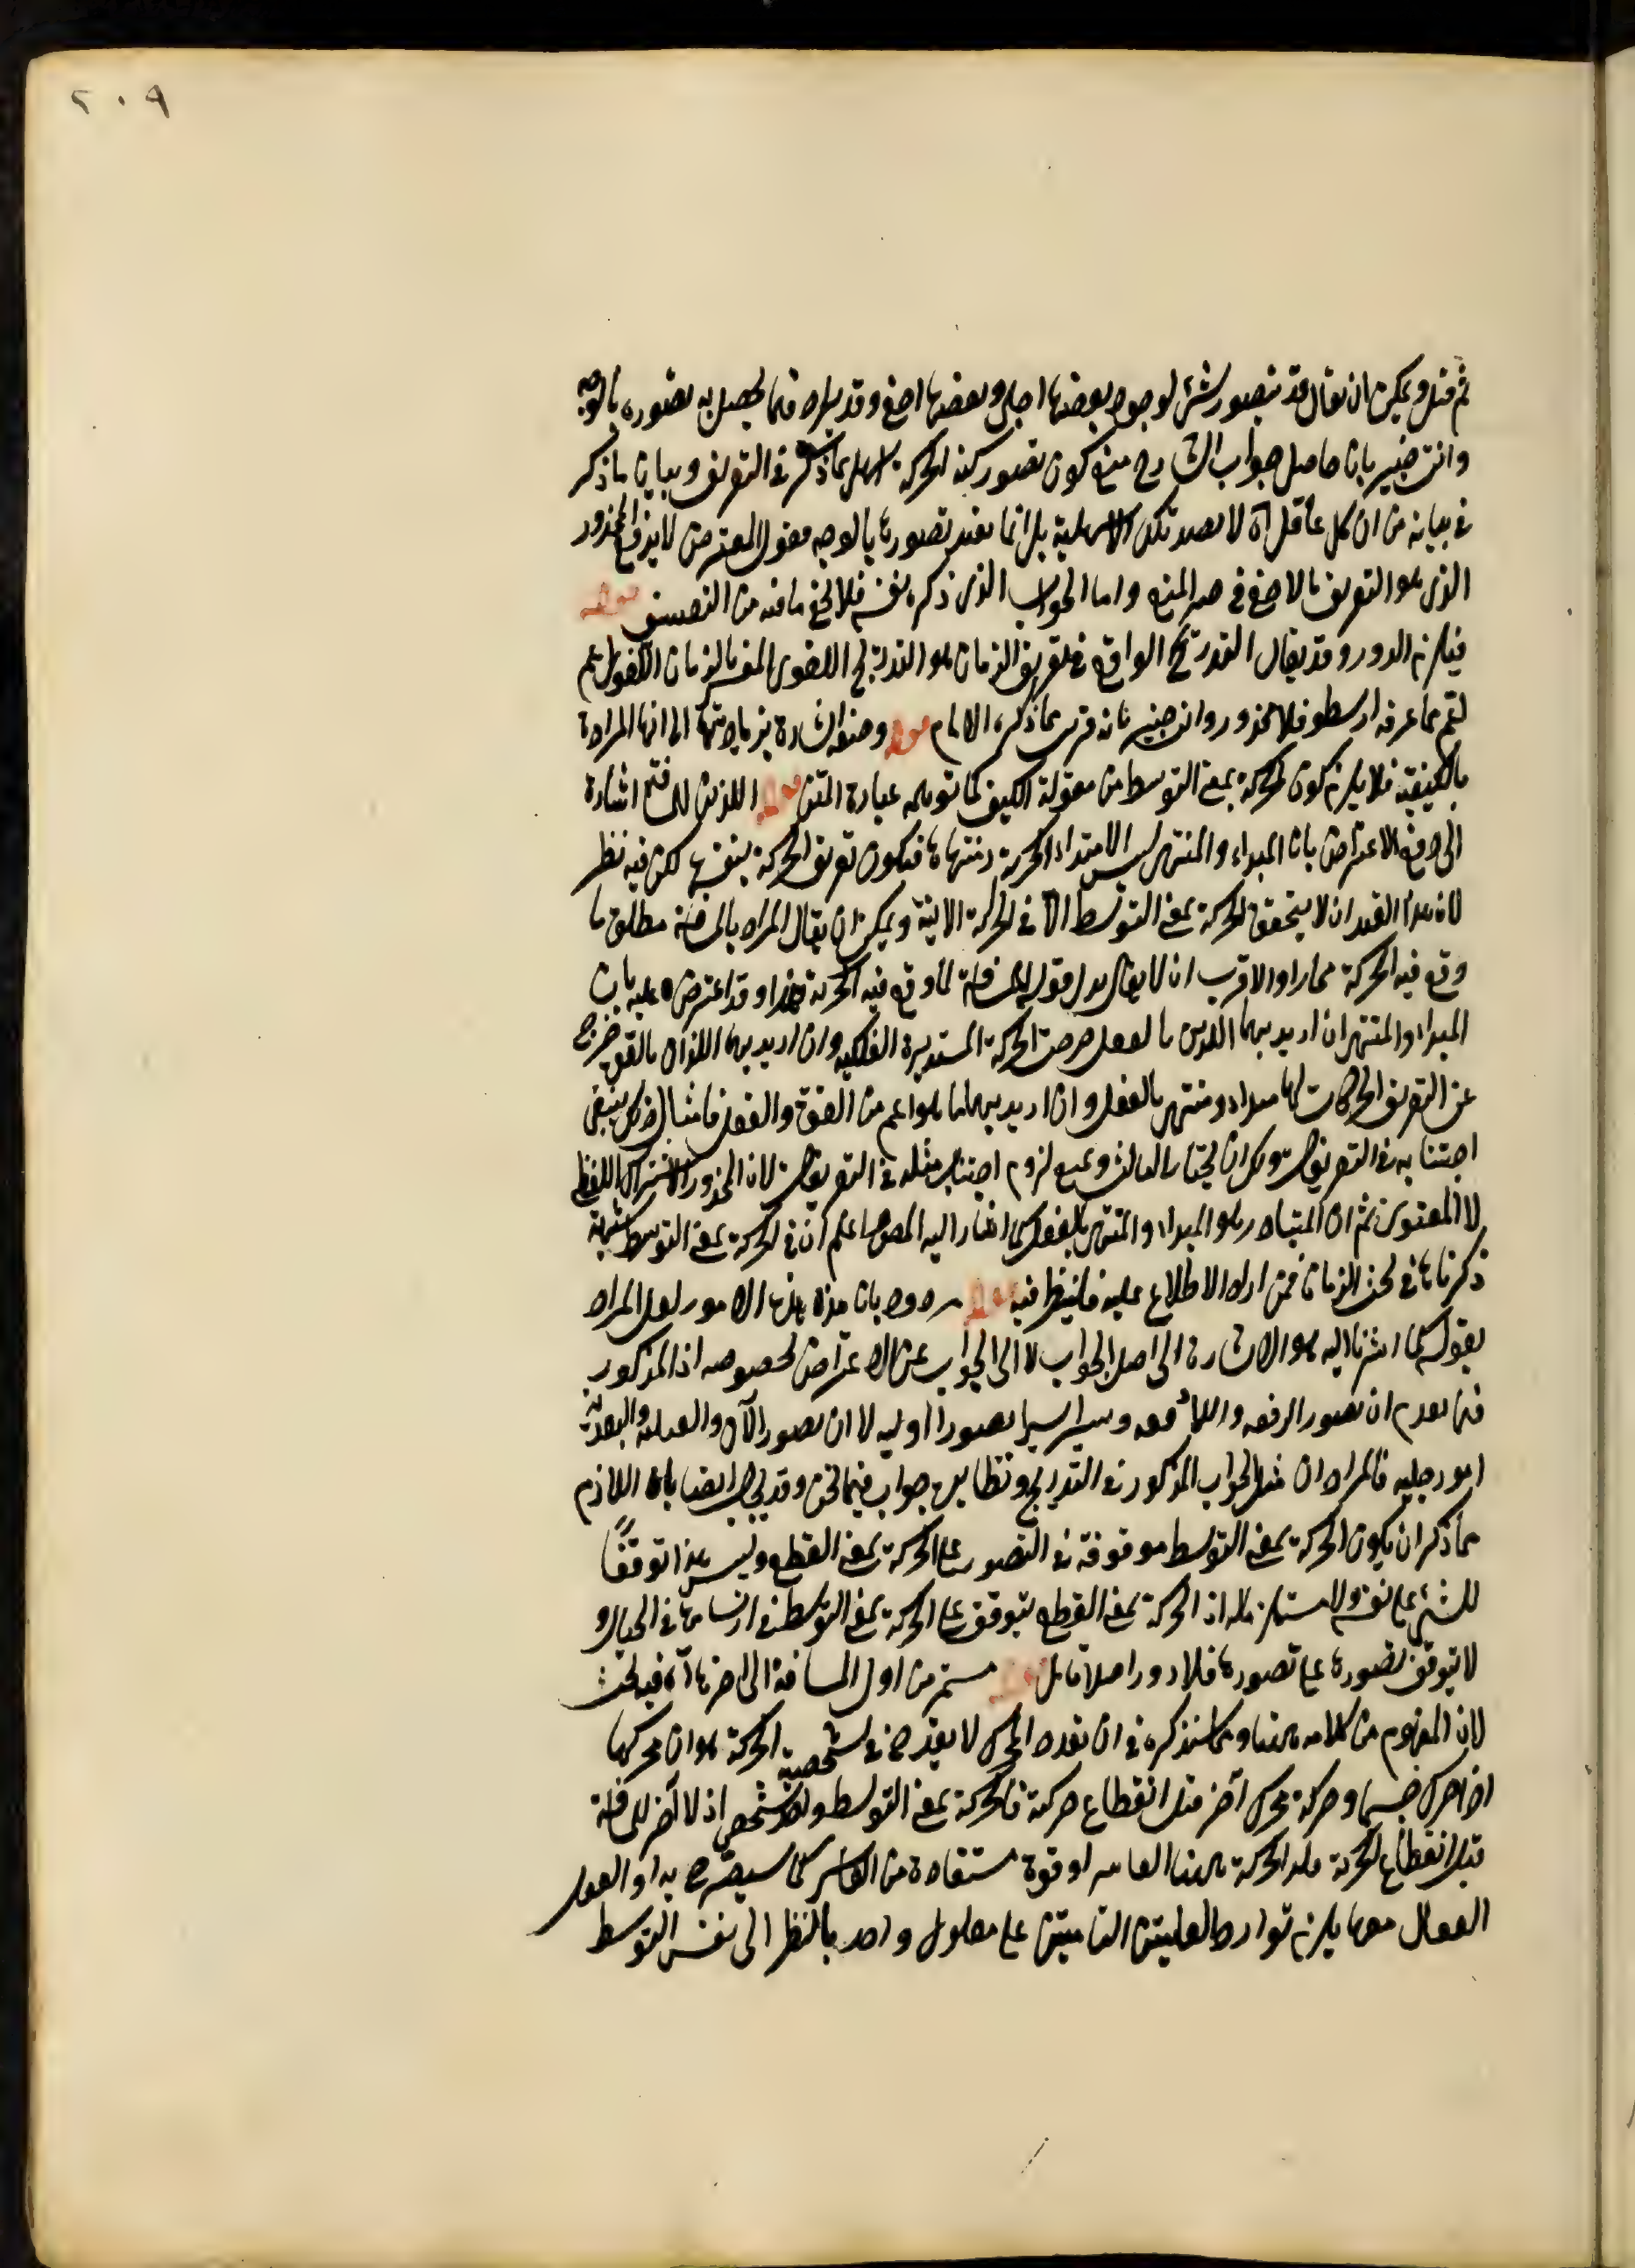 ٢٠٩
ثم قيل ويمكن ان يقال قد يتصور شئ لوجوه بعضها اجلى وبعضها اخفى وقد يراد فيما يحصل به تصوره بالوجه
وانت خبير بان حاصل جواب الشارح منع كون تصور كنه الحركة اسهل مما ذكر في التعريف وبيان ما ذكر
في بيانه من ان كل عاقل آه لا يفيد تلك الاسهلية بل انما يفيد تصورها بالوجه فقول المعترض لا يندفع المحذور
الذي هو التعريف بالاخفى في حيز المنع واما الجواب الذي ذكره بنفسه فلا يخفى ما فيه من التعسف قوله
فيلزم الدور وقد يقال التدريج الواقع في تعريف الزمان هو التدريج اللغوى المفسر بالزمان اللغوى
لثم بما عرفه ارسطو فلا محذور وانت خبير بانه قريب مما ذكره الامام قوله وصفه اشارة بزيادتها الى انها المرادة
بالكيفية فلا يلزم كون الحركة بمعنى التوسط من مقولة الكيف كما توهمه عبارة المتن قوله اللذين للمسافة اشارة
الى دفع الاعتراض بان المبداء والمنتهى ليس الا مبتداء الحركة ومنتهاها فيكون تعريف الحركة بنفسها لكن فيه نظر
لان هذا القيد ان لا يتحقق الحركة بمعنى التوسط الا في الحركة الاينية ويمكن ان يقال المراد بالمسافة مطلق ما
وقع فيه الحركة مجازا والاقرب ان لا يقال بدل قوله للمسافة لما وقع فيه الحركة هذا وقد اعترض عليه بان
المبداء والمنتهى ان اريد بهما اللذين بالفعل خرجت الحركة المستديرة الفلكية وان اريد بهما اللذان بالقوة خرج
عن التعريف الحركات لها مبداء ومنتهى بالفعل وان اريد بهما ما هو اعم من القوة والفعل فامثال ذلك ينبغي
اجتنابه في التعريفات ويمكن ان يختار الثالث ويمنع لزوم اجتناب مثله في التعريفات لان المحذور الاشتراك اللفظي
لا المعنوى ثم ان المتبادر هو المبداء والمنتهى بالفعل كما اشار اليه المص واعلم ان في الحركة بمعنى التوسط شبهة
ذكرناها في بحث الزمان فمن اراد الاطلاع عليه فلينظر فيه قوله مردود بان هذه الامور لعل المراد
بقوله كما اشرنا اليه هو الاشارة الى اصل الجواب لا الى الجواب عن الاعتراض لخصوصه اذ المذكور
فيما تقدم ان تصور الدفعة واللا دفعة ويسيرا يسيرا تصورا اولية لا ان تصور الآن والقبلية والبعدية
امور جلية فالمراد ان مثل الجواب المذكور في التدريج ونظايره جواب فيما نحن وقد يجاب ايضا بان اللازم
مما ذكر ان يكون الحركة بمعنى التوسط موقوفة في التصور على الحركة بمعنى القطع وليس هذا توقفاً
للشئ على نفسه ولا مستلزما له اذ الحركة بمعنى القطع يتوقف على الحركة بمعنى التوسط في ارتسامها في الخيال و
لا يتوقف تصورها على تصورها فلا دور اصلا تأمل قوله مستمر من اول المسافة الى آخرها آه فيه بحث
لان المفهوم من كلامه ههنا ومما سنذكره في ان تعدد المحرك لا يقدح في شخصية الحركة هو ان محركا
اذا حرك جسما وحركه محرك آخر قبل انقطاع حركته فالحركة بمعنى التوسط واحد شخصى اذ لا آخر للمسافة
قبل انقطاع الحركة وهذه الحركة ههنا القاسر او قوة مستفادة من القاسر كما سيصرح به او العقل
الفعال معها يلزم توارد العلتين التامتين على معلول واحد بالنظر الى نفس التوسط